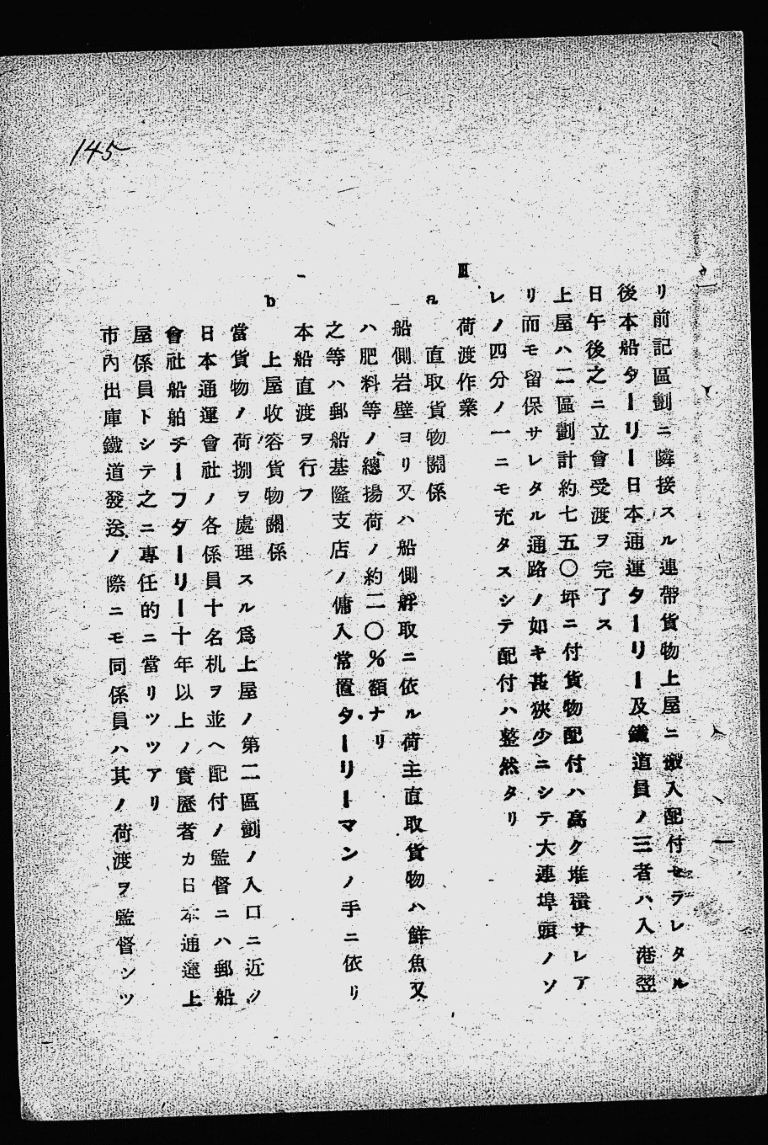 145
リ前記區劃ニ隣接スル連帶貨物上屋ニ搬入配付セラレタル
後本船ターリー日本通運ターリー及鐵道員ノ三者ハ入港翌
日午後之ニ立會受渡ヲ完了ス
上屋ハ二區劃計約七五〇坪ニ付貨物配付ハ高ク堆積サレア
リ而モ留保サレタル通路ノ如キ甚狹少ニシテ大連埠頭ノソ
レノ四分ノ一ニモ充タスシテ配付ハ整然タリ
Ⅲ 荷渡作業
a 直取貨物關係
船側岩壁ヨリ又ハ船側艀取ニ依ル荷主直取貨物ハ鮮魚又
ハ肥料等ノ總揚荷ノ約二〇%額ナリ
之等ハ郵船基隆支店ノ傭入常置ターリーマンノ手ニ依リ
本船直渡ヲ行フ
b 上屋收容貨物關係
當貨物ノ荷捌ヲ處理スル爲上屋ノ第二區劃ノ入口ニ近ク
日本通運會社ノ各係員十名机ヲ並ヘ配付ノ監督ニハ郵船
會社船舶チーフターリー十年以上ノ實歷者カ日本通運上
屋係員トシテ之ニ專任的ニ當リツツアリ
市內出庫鐵道發送ノ際ニモ同係員ハ其ノ荷渡ヲ監督シツ